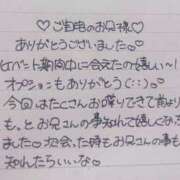 ♡ ご自宅のお兄様♡
ありがとうございました♡
イベント期間中に会えたの嬉しい〜!
オプションもありがとう(:3)♡
今回はたくさんお喋りできて前より
も、とお兄さんの事知れて嬉しくてみ
ました。次会、た時もお兄さんの事
知れたらいいな♡